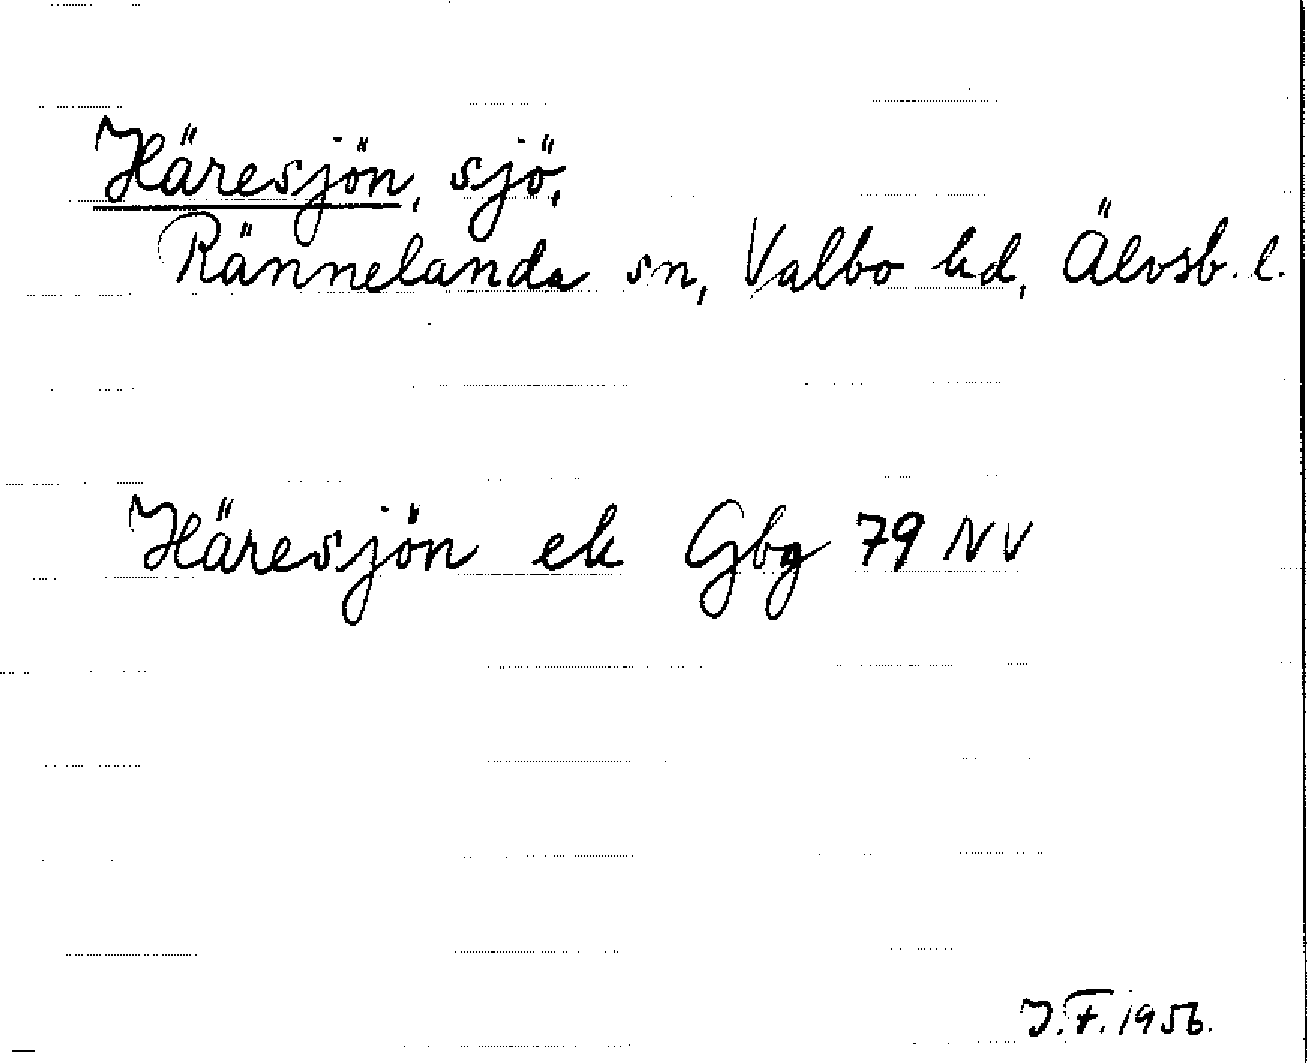 Häresjön, sjö,
Rännelanda sn, Valbo hd, Älvsb. l.
Häresjön ek Gbg 79 NV
J.F. 1956.